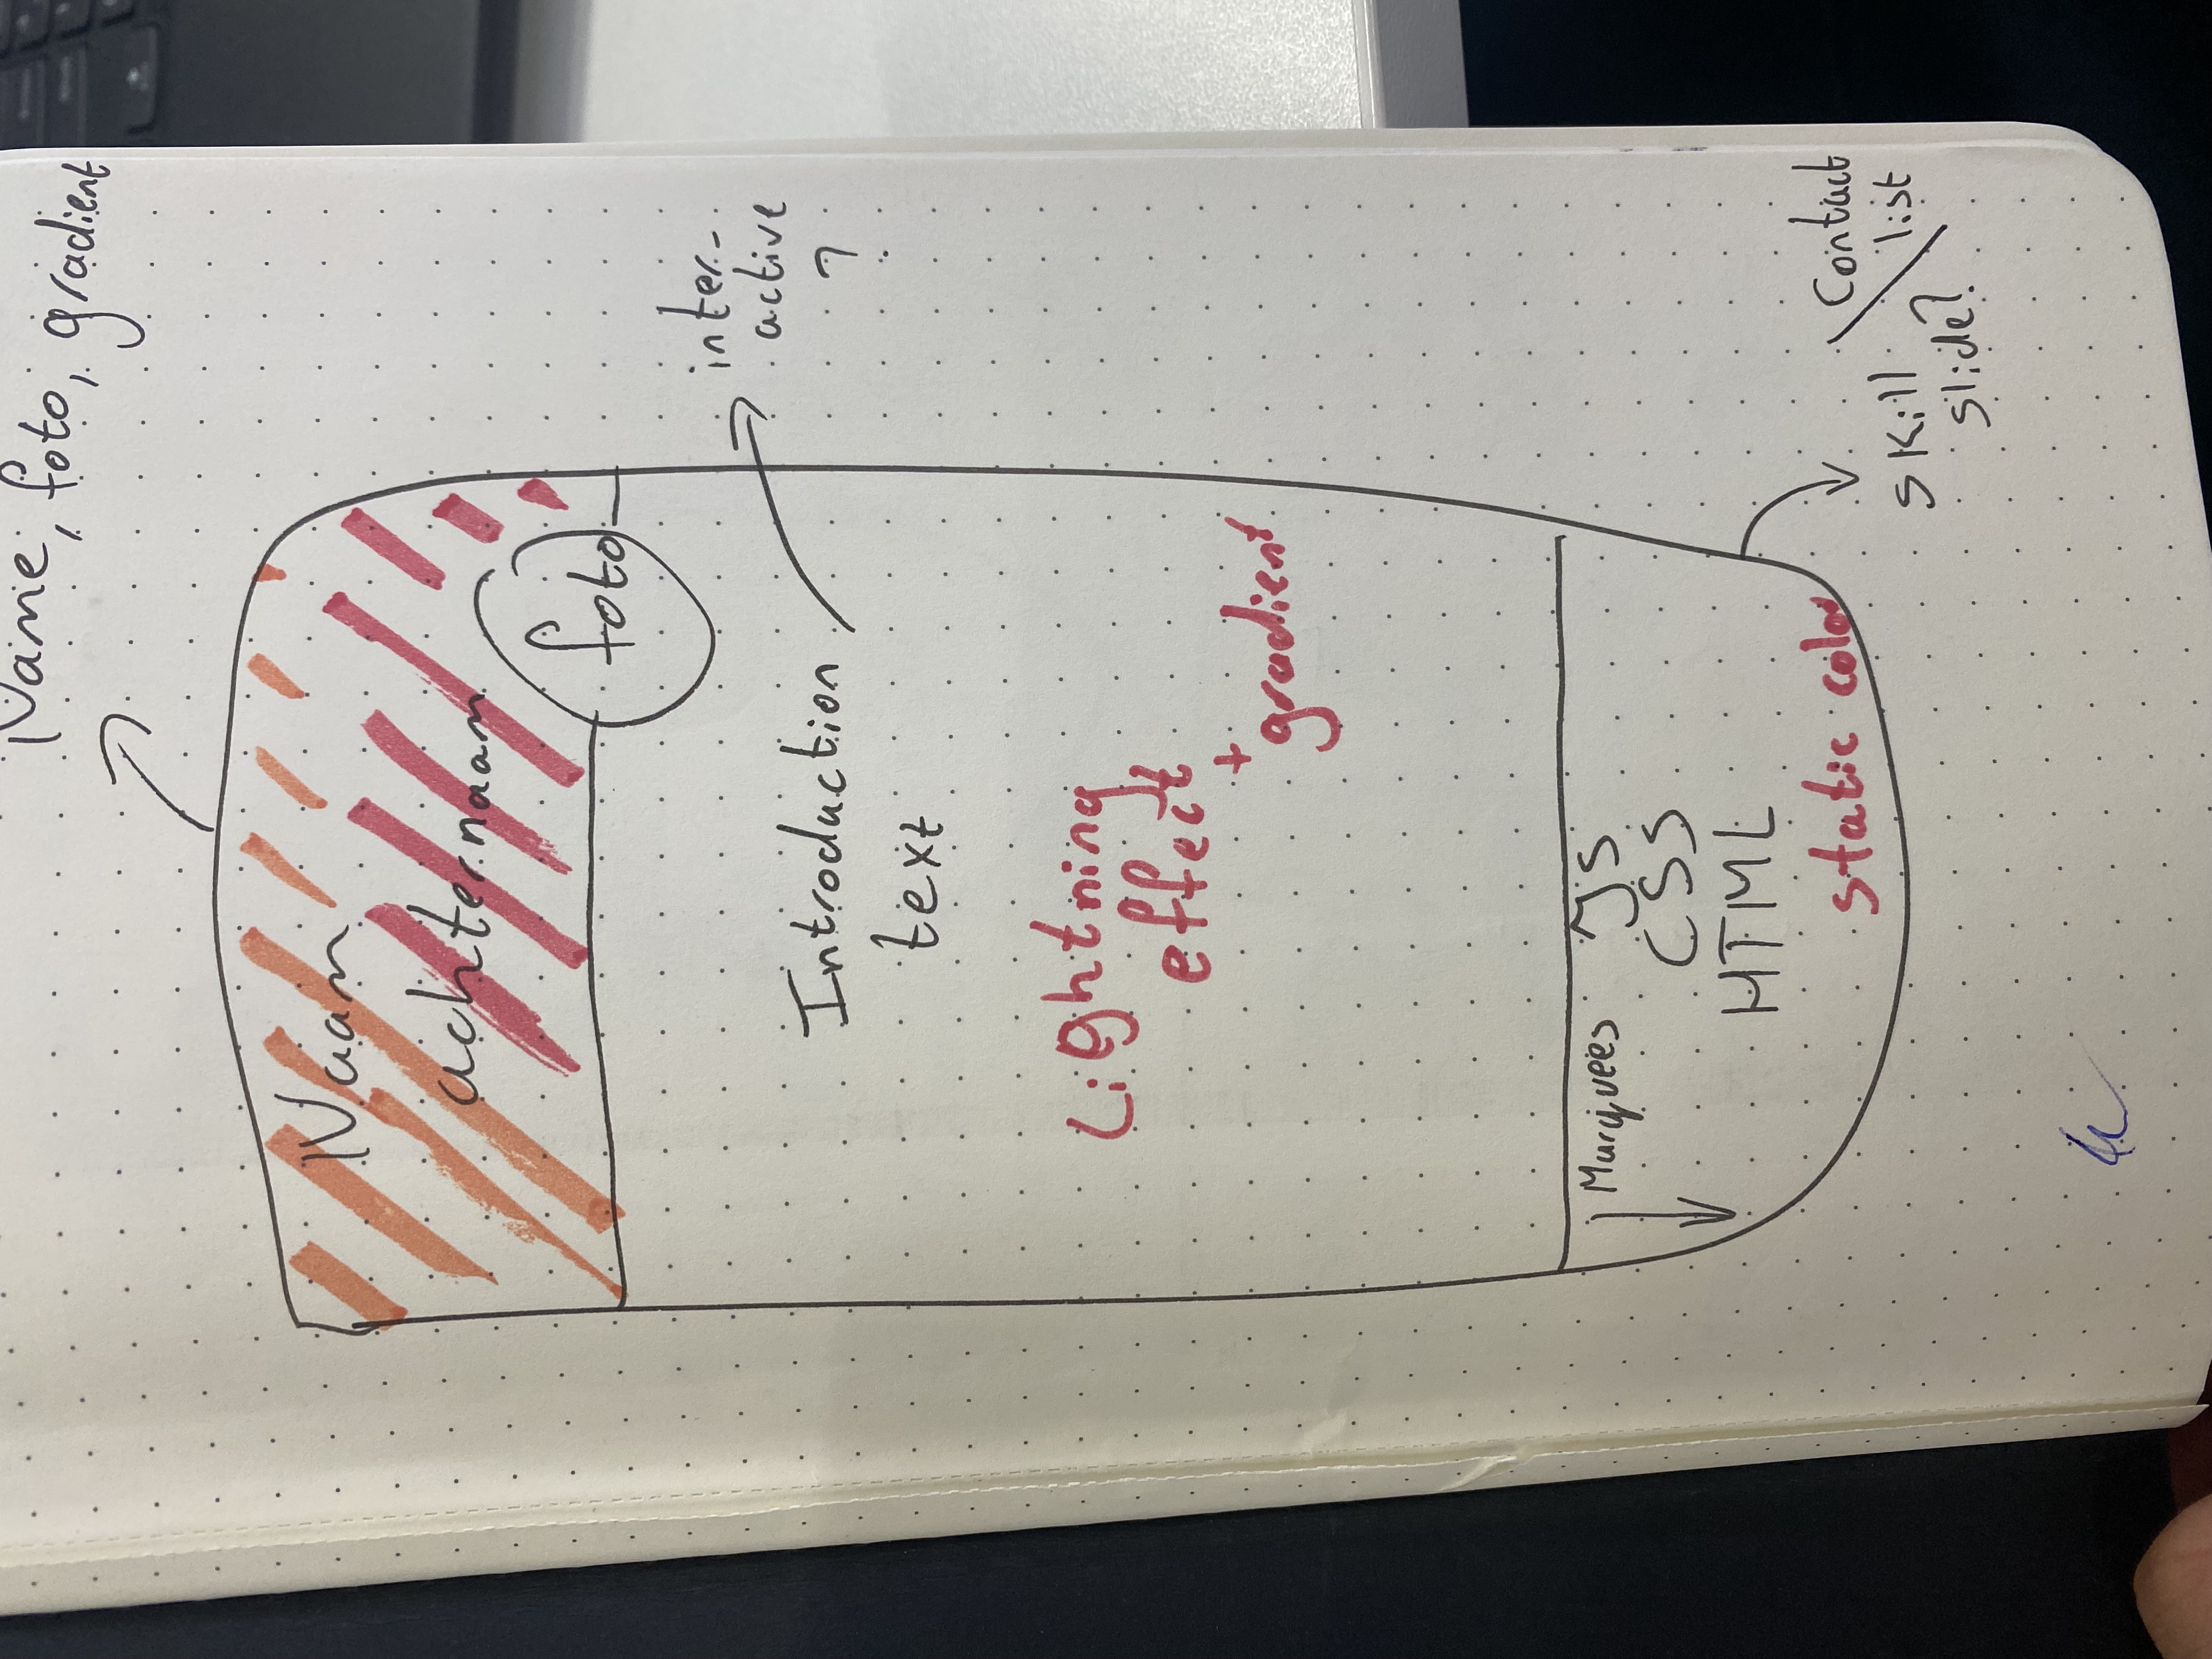 Name, foto, gradient
Naam
achternaam
foto
inter-
active
?
Introduction
text
Lightning
effect
+
gradient
Marquees
JS
CSS
HTML
static color
Contact
list
skill
slide?